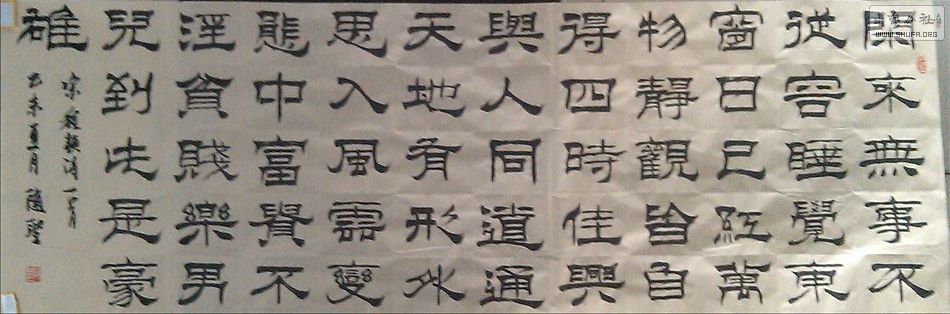 閑來無事不
從容睡覺東
窗日已紅萬
物靜觀皆自
得四時佳興
與人同道通
天地有形外
思入風雲變
態中富貴不
淫貧賤樂男
兒到此是豪
雄
宋程顥詩一首
乙未夏月
WWW.SHUFA.ORG